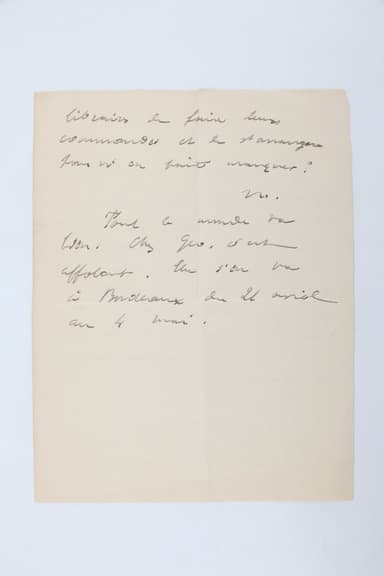 libraires de faire leurs
commandes et de s'arranger
pour n'en point manquer?
M.
Tout le monde va
bien. Chez Geo. c'est
affolant. s'en va
à Bordeaux du 21 avril
au 4 mai.